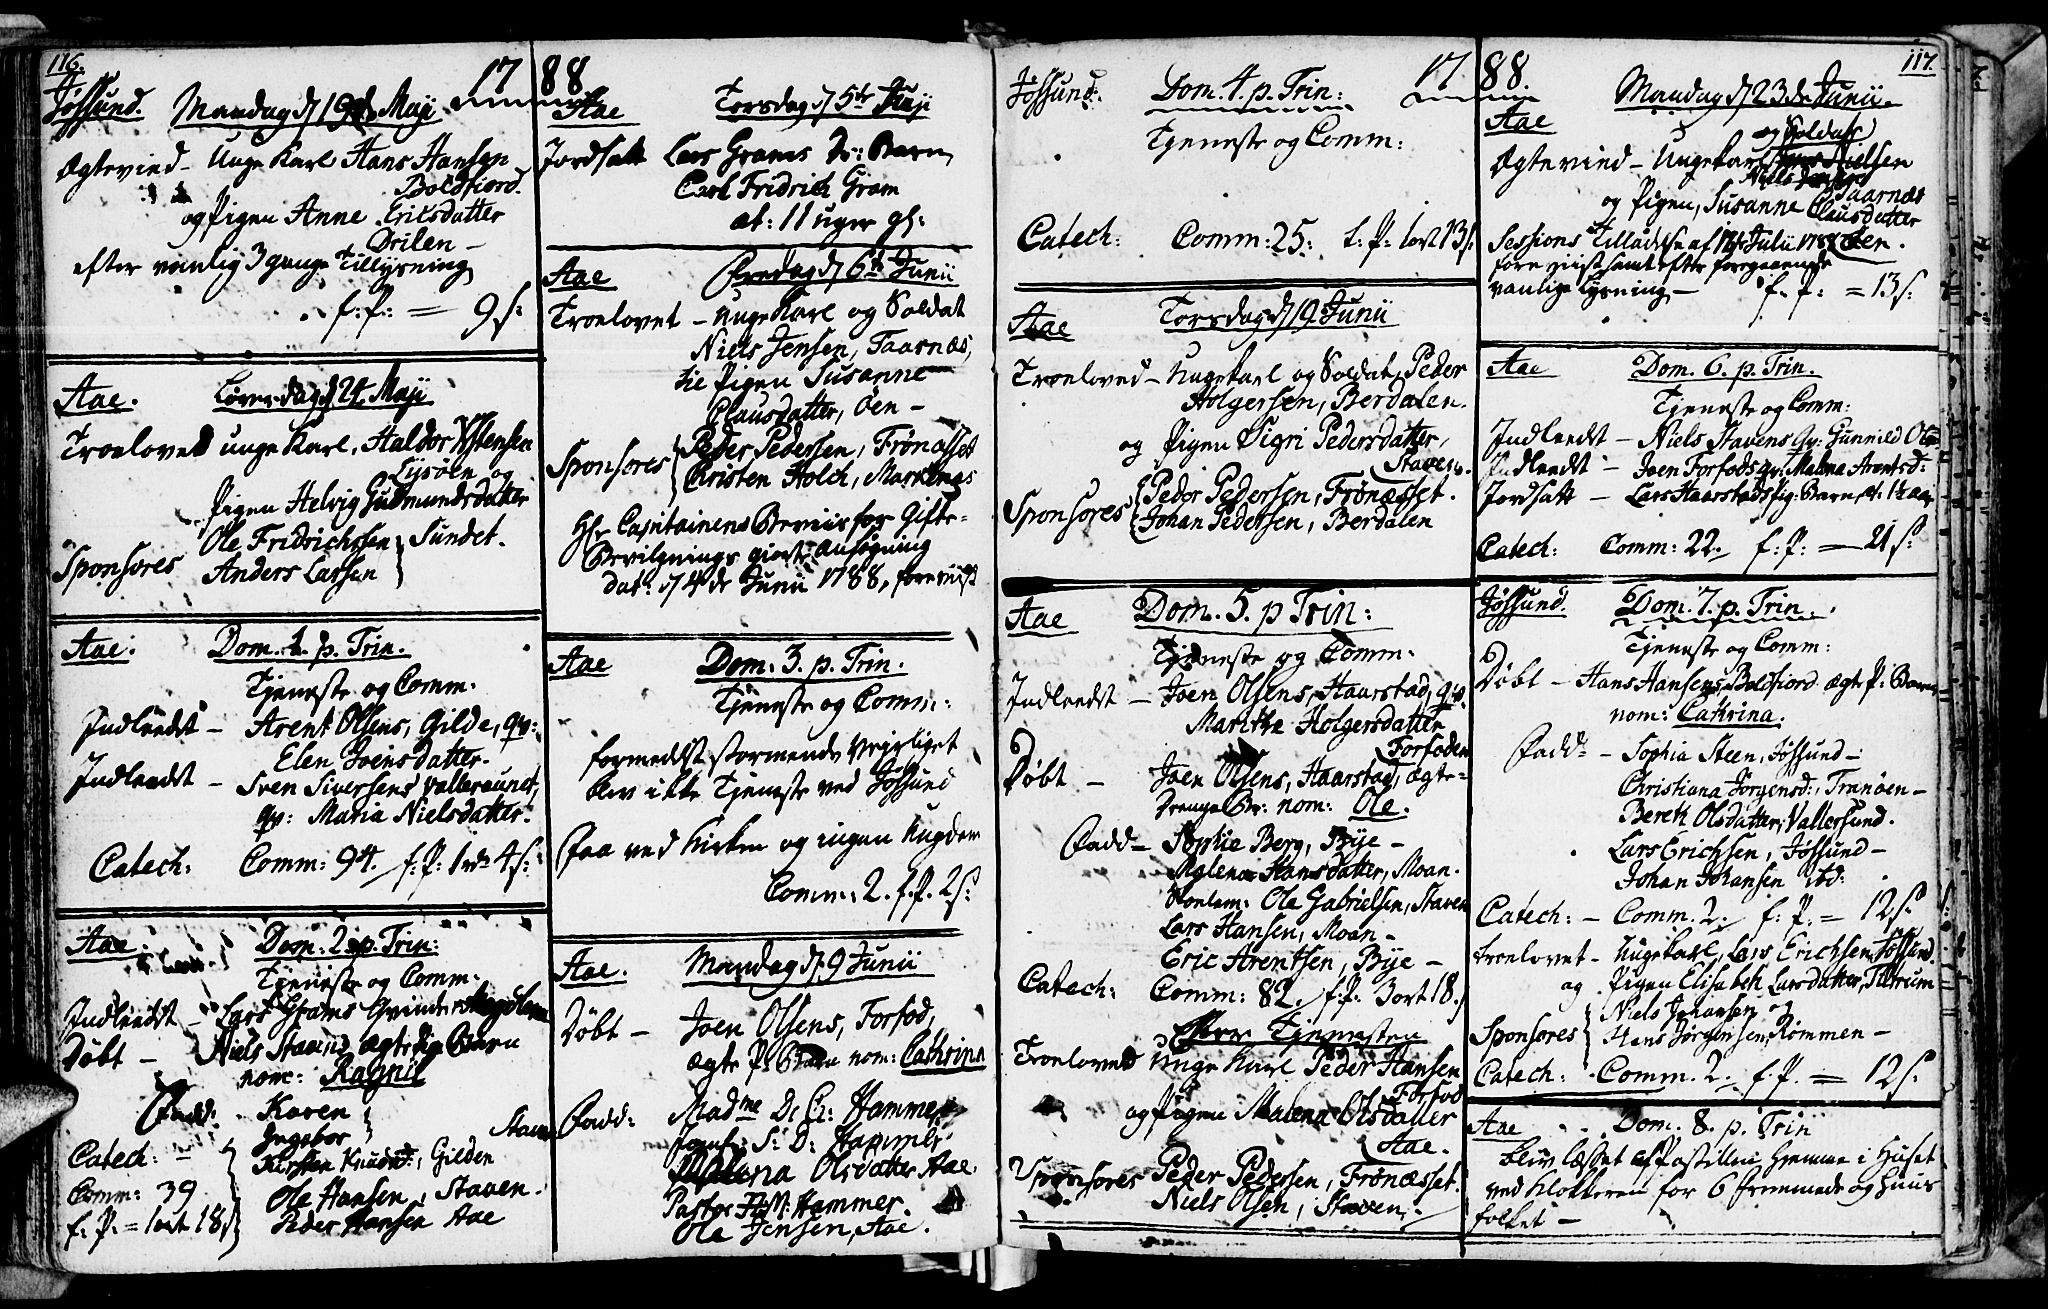 116.
17 88
Jössund. Mandag d 19de Maji
Ægtevied - Unge Karl Hans Hansen
Boldfiord.
og Pigen Anne Erilsdatter
Drilen -
efter vanlig 3 gange Tillysning
f: P: = 9 s:
Aae. Löverdag d 24 Maji
Troeloved unge Karl, Haldor
Lysöen og
Pigen Helvig Gudmundsdatter
Sponsores Ole Fridrichsen } Sundet.
Anders Larsen
Aae: Dom. 1. p. Trin.
Tjeneste og Comm:
Indleedt - Arent Olsens, Gilde, qv:
Elen Joensdatter.
Indleedt - Sven Siversens Vallersund,
qv: Maria Nielsdatter.
Catech: Comm: 94. f: P: 1 rd 4 s:
Aae: Dom: 2. p. Trin:
Tjeneste og Comm:
Indleedt - Lars Grams Qvinde
Döbt - Niels Ægte Pige Barn
nom: Ragnil
Fadd: Karen
Ingebor } Staven
Catech: - Kirsten Knudsd:, Gilden
Comm: 39 Ole Hansen, Staven.
f: P: = 1 ort 18 s Peder Hansen Aae
Aae Torsdag d 5te Juni
Jordsatt Lars Grams Dr: Barn
Carl Fridrich Gram
æt: 11 uger gl:
Aae Fredag d 6te Junii
Troelovet - unge Karl og Soldat
Niels Jensen, Taarnæs,
til Pigen Susanne
Clausdatter, Öen -
Sponsores { Peder Pedersen, Frönæsset
Christen Holch, Marknæs
Hr Capitainens Beviis for Gifte-
Bevilgnings giorte Ansögning
dat: d 4de Junii 1788, foreviist
Aae Dom: 3. p. Trin.
Tjeneste og Comm:
formedelst stormende Vejrliget
blev ikke Tjeneste ved Jössund
Faa ved Kirken og ingen Ungdom
Comm: 2. f. P. 2 s:
Aae. Mandag d. 9 Junii
Döbt - Joen Olsens, Forfod,
ægte P. Barn nom: Cathrina
Fadd: Madme D: C: Hammer
Jomf: S: D: Hammer
Malena Olsdatter Aae.
Pastor Hammer.
Ole Jensen, Aae.
117.
17 88.
Jössund: Dom. 4. p. Trin:
Tjeneste og Comm:
Catech: Comm: 25: f: P: 1 ort 13 s:
Aae Torsdag d 19 Junii
Troeloved - Unge Karl og Soldat, Peder
Holgersen, Berdalen.
og Pigen Sigri Pedersdatter,
Staven.
Sponsores { Peder Pedersen, Frönæsset.
Johan Pedersen, Berdalen
Aae Dom. 5. p Trin:
Tjeneste og Comm.
Indleedt - Joen Olsens, Haarstad, qv:
Marithe Holgersdatter
Forfoden
Döbt - Joen Olsens, Haarstad, ægte-
Drenge Br: nom: Ole.
Fadd - Sophie Berg, Bye -
Malena Hansdatter, Moan.
Ole Gabrielsen, Staven
Lars Hansen, Moan -
Eric Arentsen, Bye -
Catech: Comm: 82. f: P: 3 ort 18. s
Efter Tjenesten
Troeloved Unge Karl Peder Hansen
Forfod
og Pigen Malena Olsdatter
Aae.
Sponsores Peder Pedersen, Frönæsset.
Niels Olsen, Staven.
Mandag d 23de Junii.
Aae
og Soldat
Ægtevied - Unge Karl Jens Nielsen
Niels Jensen
Taarnæs
og Pigen, Susanne Clausdatter
Öen.
Sessions Tilladelse af Julii 1788
foreviist samt efter foregaaende
vanlige lysning - f. P: = 13 s:
Aae Dom. 6. p. Trin.
Tjeneste og Comm:
Indleedt - Niels Stavens Qv: Gunnild
Indleedt - Joen Forfods qv: Malena Arentsd:
Jordsatt - Lars Haarstads Pig: Barn, æt. 1½ aar
Catech: Comm: 22. f: P: = 21 s:
Jössund. Dom. 7. p. Trin.
Tjeneste og Comm:
Döbt - Hans Hansens, Boldfiord ægte P: Barn
nom: Cathrina.
Fadd: - Sophia Steen, Jössund -
Christiana Jörgensd:, Tranöen -
Bereth Olsdatter, Vallersund.
Lars Erichsen, Jössund -
Johan Johansen ibd:
Catech: - Comm. 2. f: P. = 12 s.
Troelovet - Unge Karl, Lars Erichsen, Jössund.
og Pigen Elisabeth Larsdatter, Tiltrum
Sponsores { Niels Johansen og
Hans Jörgensen, Römmen -
Catech: Comm. 2. f. P. = 12 s:
Aae Dom. 8. p. Trin
Blev læsset af Postillen hiemme i Huset
ved Klokkeren for 6 fremmede og Huus
folket -